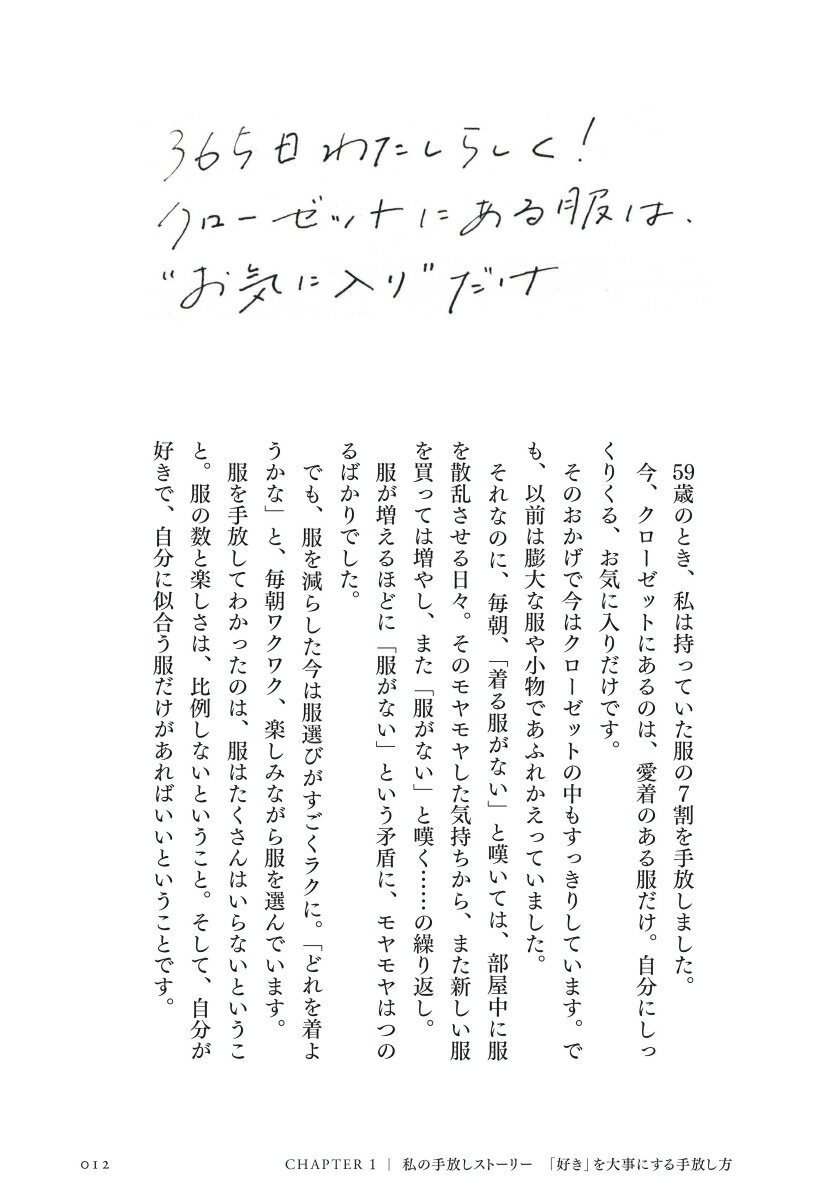 365日わたしらしく!
クローゼットにある服は、
“お気に入り”だけ
59歳のとき、私は持っていた服の7割を手放しました。
今、クローゼットにあるのは、愛着のある服だけ。自分にしっ
くりくる、お気に入りだけです。
そのおかげで今はクローゼットの中もすっきりしています。で
も、以前は膨大な服や小物であふれかえっていました。
それなのに、毎朝、「着る服がない」と嘆いては、部屋中に服
を散乱させる日々。そのモヤモヤした気持ちから、また新しい服
を買っては増やし、また「服がない」と嘆く……の繰り返し。
服が増えるほどに「服がない」という矛盾に、モヤモヤはつの
るばかりでした。
でも、服を減らした今は服選びがすごくラクに。「どれを着よ
うかな」と、毎朝ワクワク、楽しみながら服を選んでいます。
服を手放してわかったのは、服はたくさんはいらないというこ
と。服の数と楽しさは、比例しないということ。そして、自分が
好きで、自分に似合う服だけがあればいいということです。
012
CHAPTER 1 | 私の手放しストーリー 「好き」を大事にする手放し方